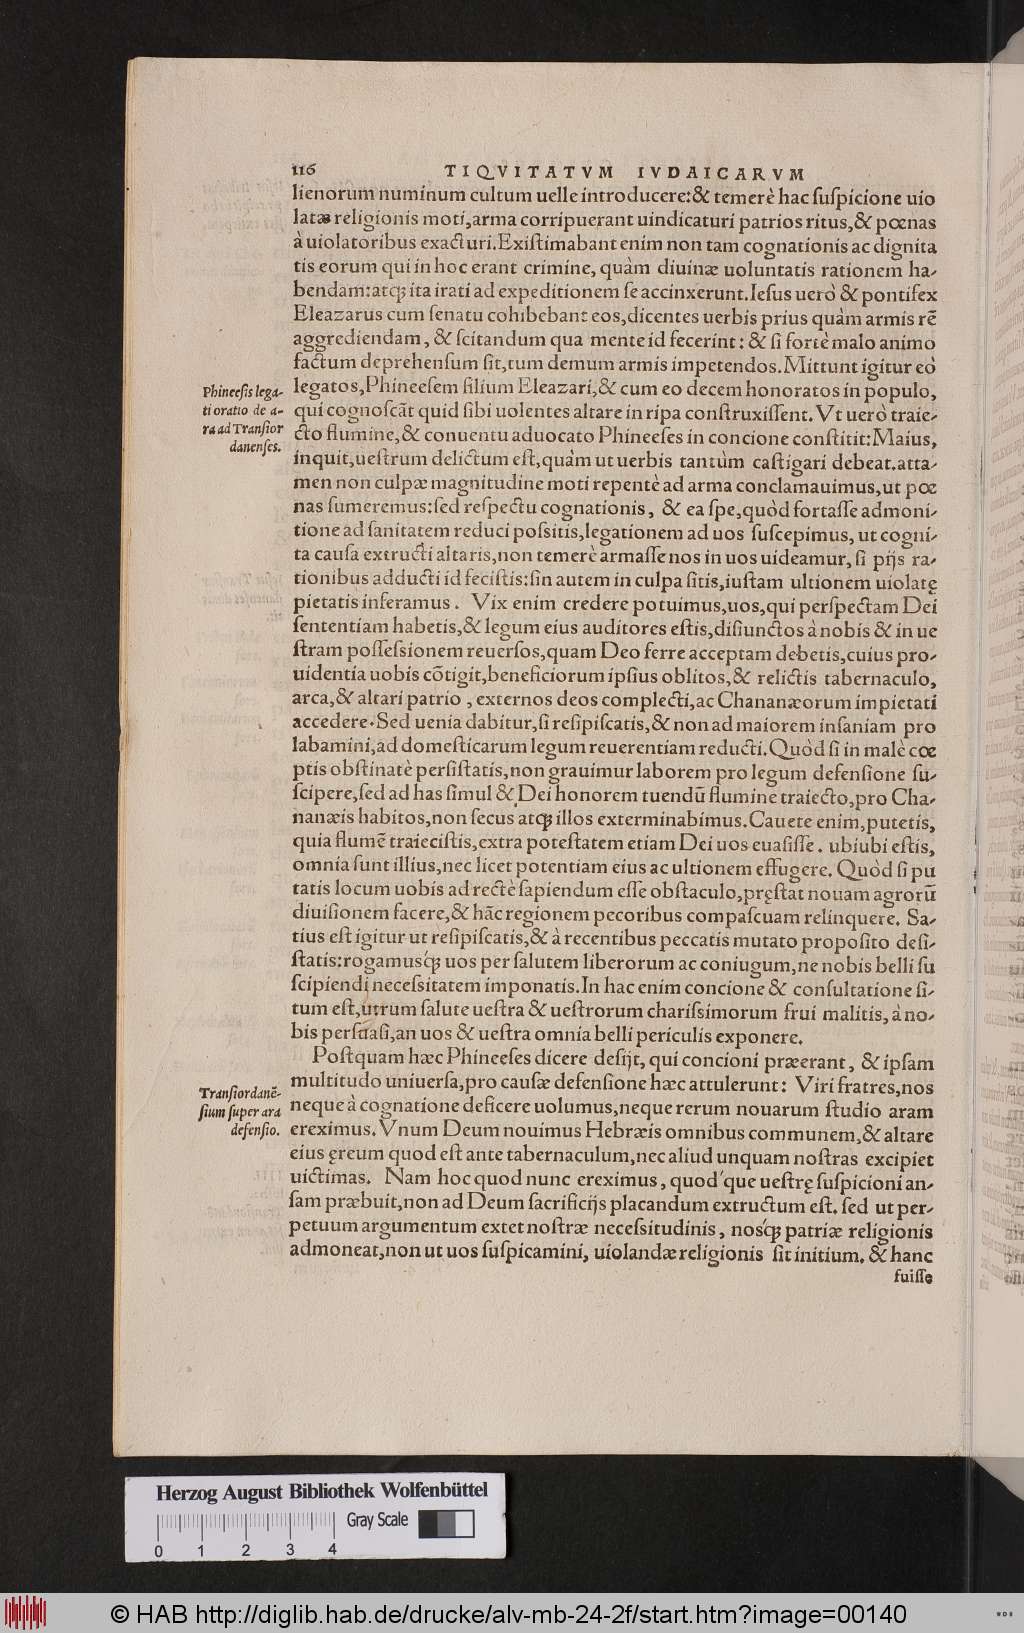 116 TIQVITATVM IVDAICARVM
lienorum numinum cultum uelle introducere:& temerè hac ſuſpicione uio
latæ religionis moti,arma corripuerant uindicaturi patrios ritus,& pœnas
à uiolatoribus exacturi.Exiſtimabant enim non tam cognationis ac dignita
tis eorum qui in hoc erant crimine, quàm diuinæ uoluntatis rationem ha-
bendam:atq; ita irati ad expeditionem ſe accinxerunt.Ieſus uerò & pontifex
Eleazarus cum ſenatu cohibebant eos,dicentes uerbis prius quàm armis rē
aggrediendam, & ſcitandum qua mente id fecerint: & ſi fortè malo animo
factum deprehenſum ſit,tum demum armis impetendos.Mittunt igitur eò
Phineeſis lega-
ti oratio de a-
ra ad Tranſior
danenſes.
legatos,Phineeſem filium Eleazari,& cum eo decem honoratos in populo,
qui cognoſcāt quid ſibi uolentes altare in ripa conſtruxiſſent. Vt uerò traie-
cto flumine,& conuentu aduocato Phineeſes in concione conſtitit:Maius,
inquit,ueſtrum delictum eſt,quàm ut uerbis tantùm caſtigari debeat.atta-
men non culpæ magnitudine moti repentè ad arma conclamauimus,ut pœ
nas ſumeremus:ſed reſpectu cognationis, & ea ſpe,quòd fortaſſe admoni-
tione ad ſanitatem reduci poſsitis,legationem ad uos ſuſcepimus, ut cogni-
ta cauſa extructi altaris,non temerè armaſſe nos in uos uideamur, ſi pijs ra-
tionibus adducti id feciſtis:ſin autem in culpa ſitis,iuſtam ultionem uiolatę
pietatis inferamus. Vix enim credere potuimus,uos,qui perſpectam Dei
ſententiam habetis,& legum eius auditores eſtis,diſiunctos à nobis & in ue
ſtram poſſeſsionem reuerſos,quam Deo ferre acceptam debetis,cuius pro-
uidentia uobis cōtigit,beneficiorum ipſius oblitos,& relictis tabernaculo,
arca,& altari patrio, externos deos complecti,ac Chananæorum impietati
accedere.Sed uenia dabitur,ſi reſipiſcatis,& non ad maiorem inſaniam pro
labamini,ad domeſticarum legum reuerentiam reducti.Quòd ſi in malè cœ
ptis obſtinatè perſiſtatis,non grauimur laborem pro legum defenſione ſu-
ſcipere,ſed ad has ſimul & Dei honorem tuendū flumine traiecto,pro Cha-
nanæis habitos,non ſecus atq; illos exterminabimus.Cauete enim,putetis,
quia flumē traieciſtis,extra poteſtatem etiam Dei uos euaſiſſe. ubiubi eſtis,
omnia ſunt illius,nec licet potentiam eius ac ultionem effugere. Quòd ſi pu
tatis locum uobis ad rectè ſapiendum eſſe obſtaculo,pręſtat nouam agrorū
diuiſionem facere,& hāc regionem pecoribus compaſcuam relinquere. Sa-
tius eſt igitur ut reſipiſcatis,& à recentibus peccatis mutato propoſito deſi-
ſtatis:rogamusq́; uos per ſalutem liberorum ac coniugum,ne nobis belli ſu
ſcipiendi neceſsitatem imponatis.In hac enim concione & conſultatione ſi-
tum eſt,utrum ſalute ueſtra & ueſtrorum chariſsimorum frui malitis, à no-
bis perſuaſi,an uos & ueſtra omnia belli periculis exponere.
Poſtquam hæc Phineeſes dicere deſijt, qui concioni præerant, & ipſam
Tranſiordanē-
ſium ſuper ara
defenſio.
multitudo uniuerſa,pro cauſæ defenſione hæc attulerunt: Viri fratres,nos
neque à cognatione deficere uolumus,neque rerum nouarum ſtudio aram
ereximus.Vnum Deum nouimus Hebræis omnibus communem,& altare
eius ęreum quod eſt ante tabernaculum,nec aliud unquam noſtras excipiet
uictimas. Nam hoc quod nunc ereximus, quod´que ueſtrę ſuſpicioni an-
ſam præbuit,non ad Deum ſacrificijs placandum extructum eſt. ſed ut per-
petuum argumentum extet noſtræ neceſsitudinis, nosq́; patriæ religionis
admoneat,non ut uos ſuſpicamini, uiolandæ religionis ſit initium. & hanc
fuiſſe
Herzog August Bibliothek Wolfenbüttel
Gray Scale
0 1 2 3 4
© HAB http://diglib.hab.de/drucke/alv-mb-24-2f/start.htm?image=00140